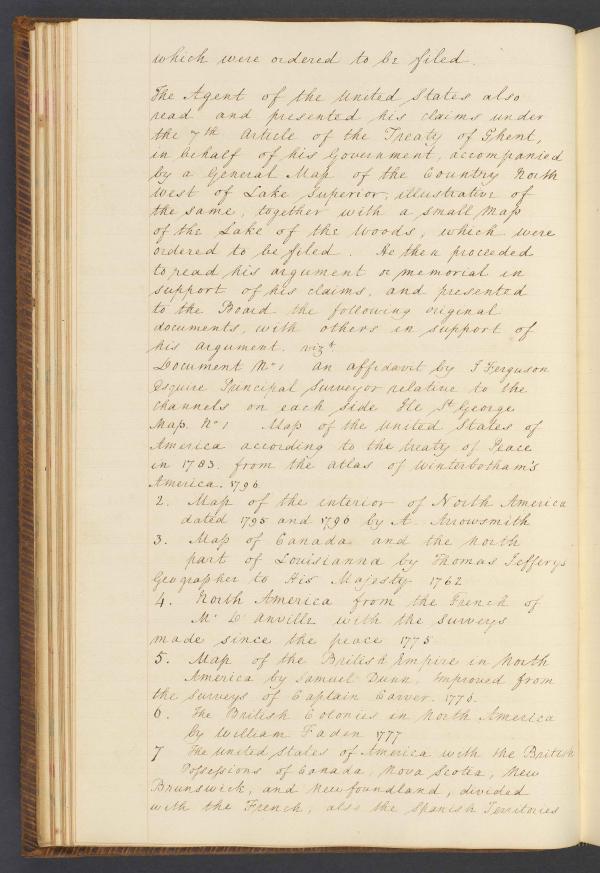 which were ordered to be filed.
The Agent of the United States also
read and presented his claims under
the 7th Article of the Treaty of Ghent,
in behalf of his Government, accompanied
by a General Map of the Country North
West of Lake Superior, illustrative of
the same, together with a small Map
of the Lake of the Woods, which were
ordered to be filed. He then proceeded
to read his argument or memorial in
support of his claims, and presented
to the Board the following original
documents, with others in support of
his argument. vizt.
Document No 1 an affidavit by J Ferguson
Esquire Principal Surveyor relative to the
channels on each side Ile St George
Map. No 1 Map of the United States of
America according to the treaty of Peace
in 1783. from the atlas of Winterbotham's
America. 1796.
2. Map of the interior of North America
dated 1795 and 1796 by A. Arrowsmith
3. Map of Canada and the north
part of Louisianna by Thomas Jefferys
Geographer to His Majesty 1762
4. North America from the French of
Mr D'Anville with the surveys
made since the peace 1775
5. Map of the British Empire in North
America by Samuel Dunn. Improved from
the surveys of Captain Carver. 1776.
6. The British Colonies in North America
by William Faden 1777
7 The United States of America with the British
Possessions of Canada, Nova Scotia, New
Brunswick, and Newfoundland, divided
with the French, also the Spanish Territories